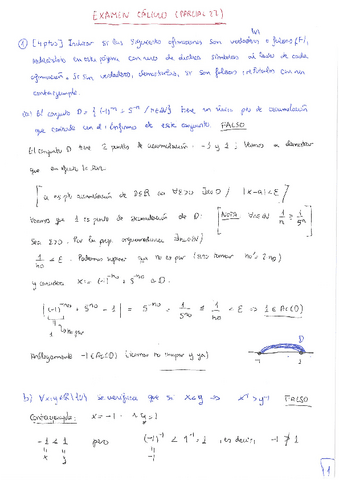 EXAMEN CÁLCULO (PARCIAL II)
① [4 ptos] Indicar si las siguientes afirmaciones son verdaderas o falsas (F),
en esta página con uno de dichos símbolos al lado de cada
afirmación. Si son verdaderas, demostrarlas, si son falsas, con un
contraejemplo.
(a) El conjunto D = { (-1)^n + 5^-n / n∈ℕ } tiene un único pto de acumulación
que coincide con el ínfimo de este conjunto. FALSO
El conjunto D tiene 2 puntos de acumulación: -1 y 1; Veamos a demostrar
que
[a es pto acumulación de D⊆ℝ ⟺ ∀ε>0 ∃x∈D / |x-a|<ε]
Veamos que 1 es punto de acumulación de D:
[NOTA: ∀n∈ℕ 1/n ≥ 1/5^n]
Sea ε>0. Por la prop. arquimediana ∃n0∈ℕ /
1/n0 < ε. Podemos suponer que n0 es par (sino tomar n0' = 2n0)
y considero x = (-1)^n0 + 5^-n0 ∈ D.
|(-1)^n0 + 5^-n0 - 1| = 5^-n0 = 1/5^n0 ≤ 1/n0 < ε ⇒ 1∈Ac(D)
1 n0 par
Análogamente -1∈Ac(D) (tomar n0 impar y ya)
D
-1 1
b) ∀x,y∈ℝ\{0} se verifica que si x<y ⇒ x^-1 > y^-1 FALSO
Contraejemplo: x = -1 y = 1
-1 < 1 pero (-1)^-1 < 1^-1 = 1, es decir, -1 ≯ 1
x y -1
1